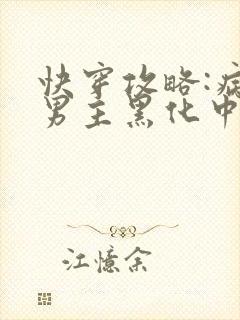 快穿攻略:病
男主黑化中
江憶余